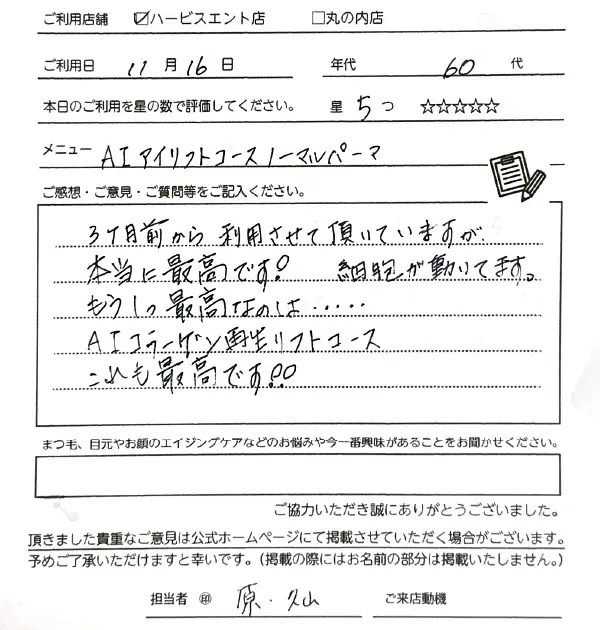 ご利用店舗 ☑ハービスエント店 □丸の内店
ご利用日 11月16日 年代 60代
本日のご利用を星の数で評価してください。 星 5つ ☆☆☆☆☆
メニュー AIアイリフトコース ノーマルパーマ
ご感想・ご意見・ご質問等をご記入ください。
3ケ月前から利用させて頂いていますが、
本当に最高です! 細胞が動いてます。
もう1つ最高なのは・・・・・
AIコラーゲン再生リフトコース
これも最高です!!
まつ毛、目元やお顔のエイジングケアなどのお悩みや今一番興味があることをお聞かせください。
ご協力いただき誠にありがとうございました。
頂きました貴重なご意見は公式ホームページにて掲載させていただく場合がございます。
予めご了承いただけますと幸いです。(掲載の際にはお名前の部分は掲載いたしません。)
担当者 ㊞ 原・久山 ご来店動機